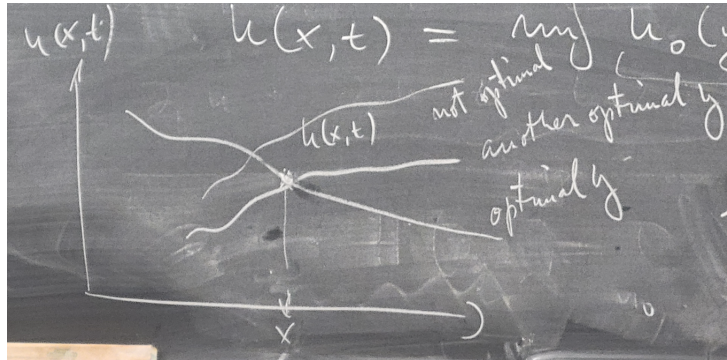 u(x,t)
u(x,t) = inf u₀(y
not optimal
u(x,t)
another optimal y
optimal y
x
u₀